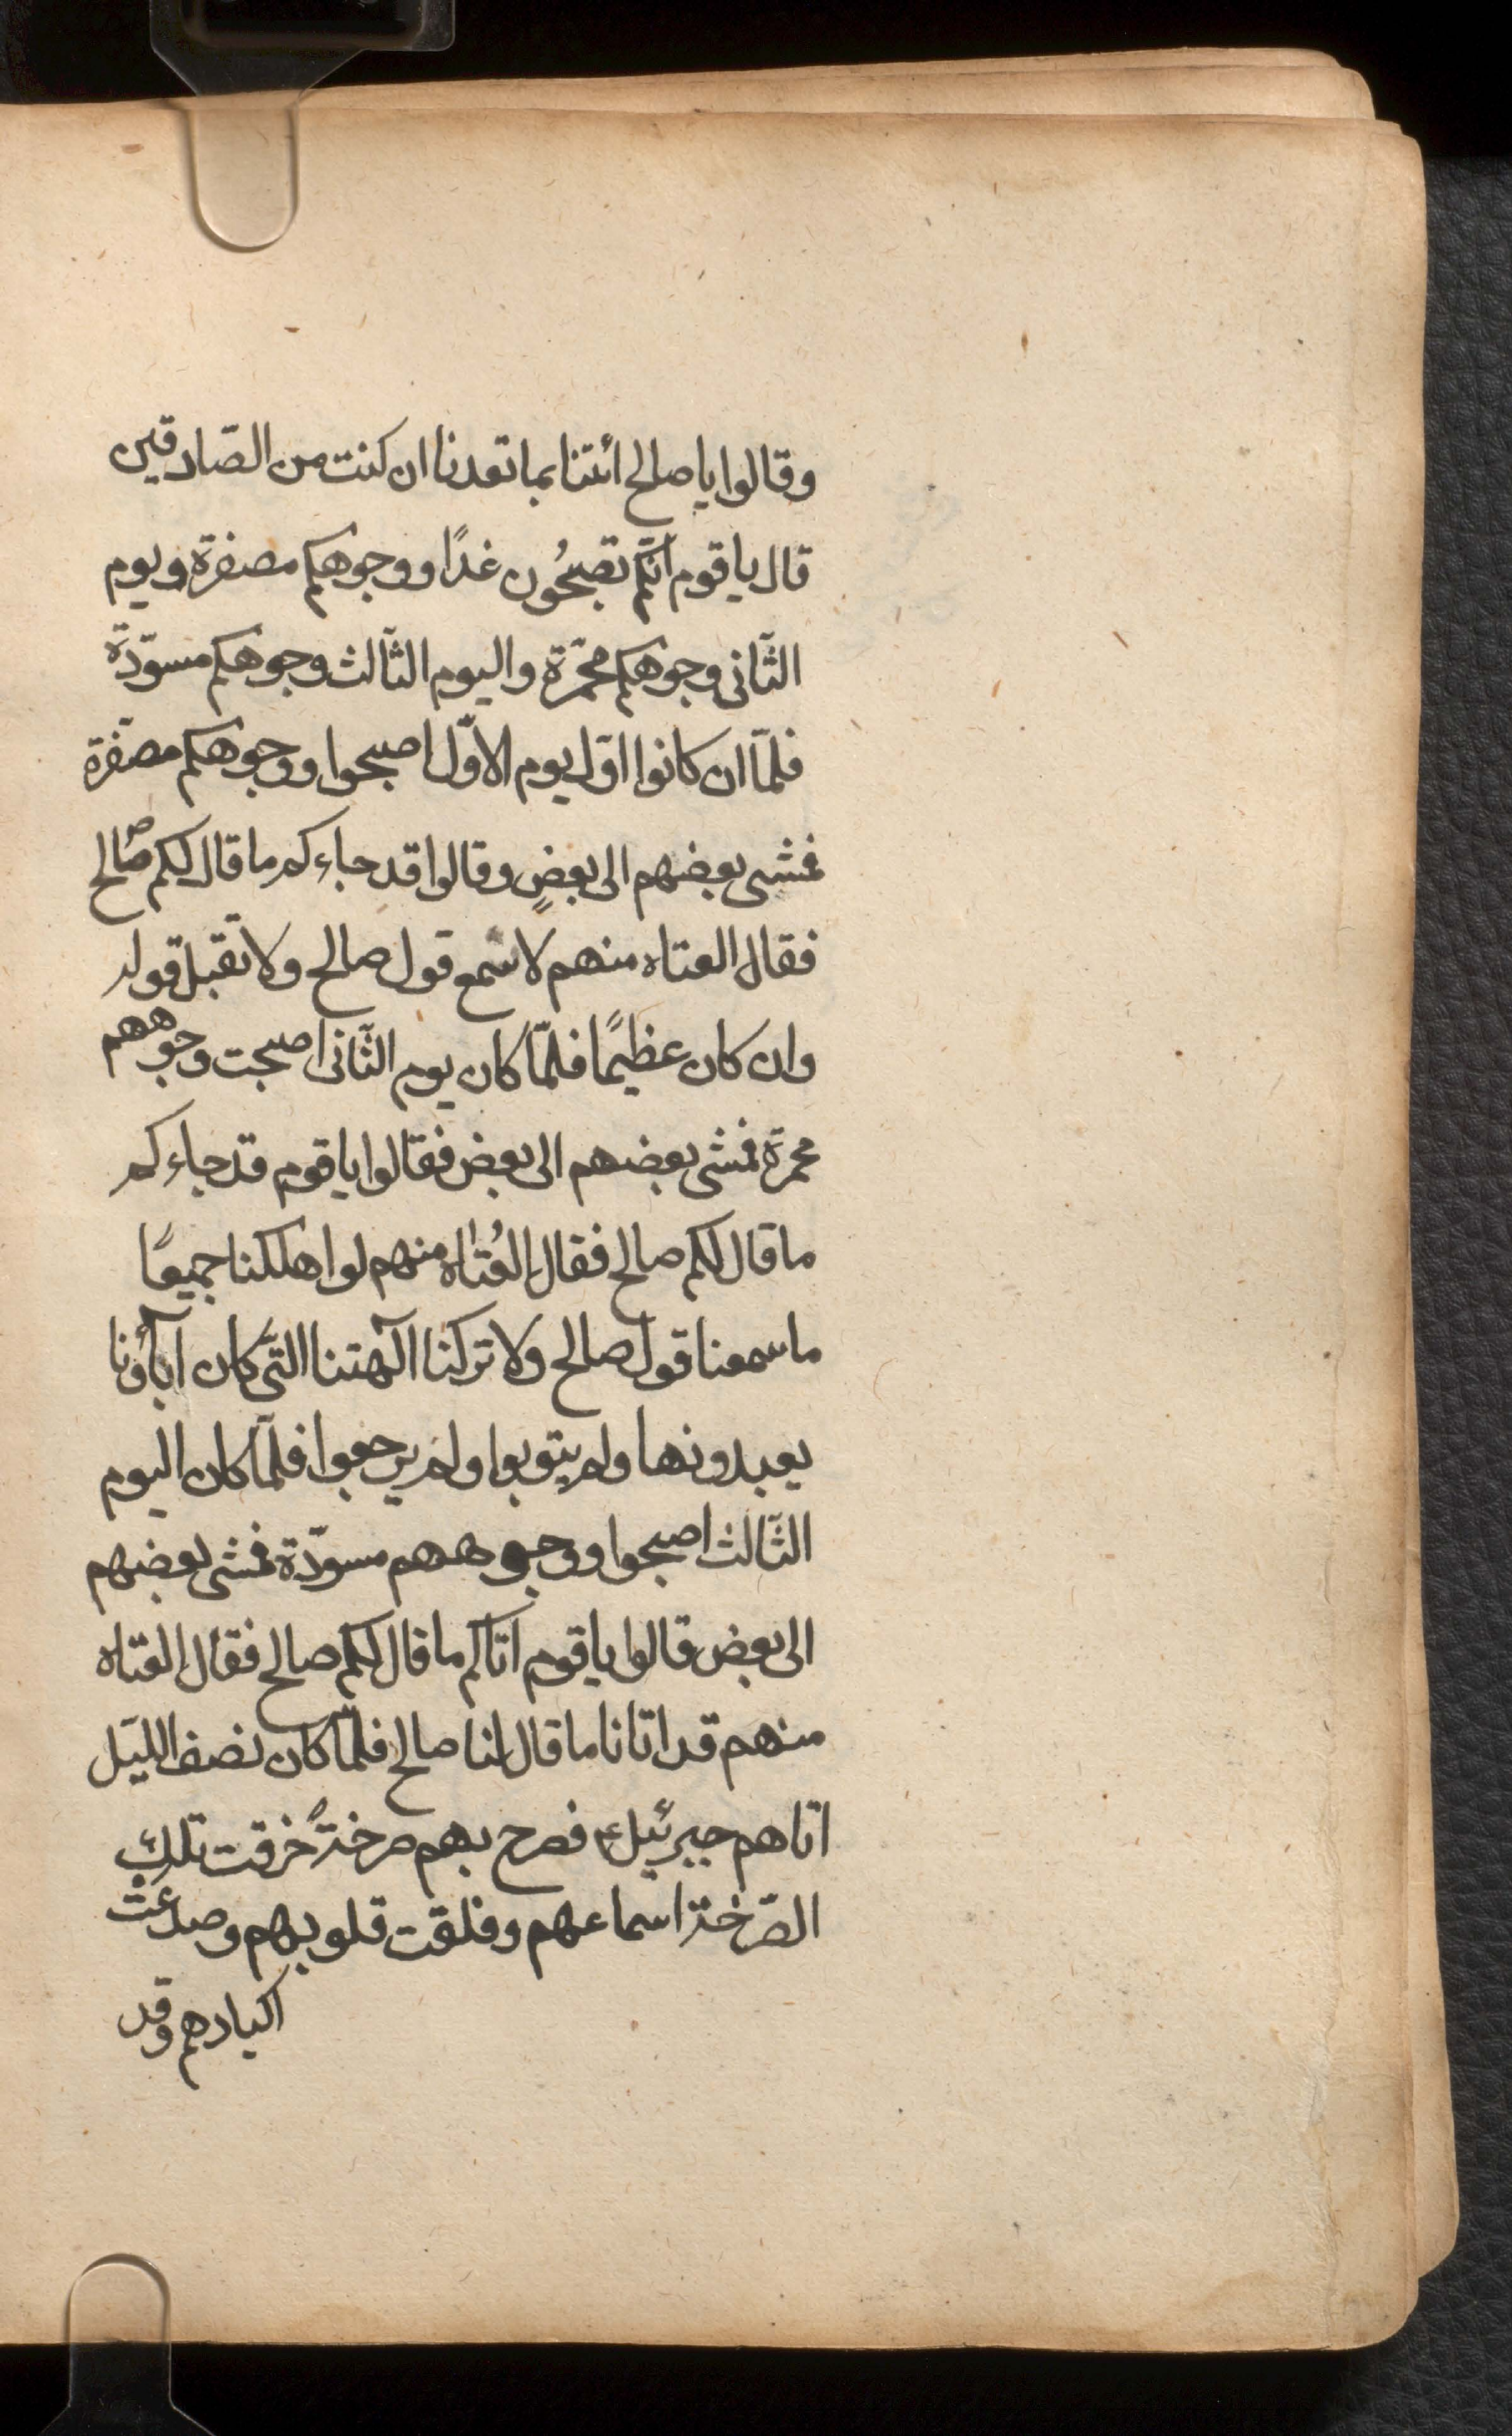 وقالوا يا صالح ائتنا بما تعدنا ان كنت من الصّادقين
قال يا قوم انّكم تصبحُون غدًا ووجوهكم مصفرة ويوم
الثّانى وجوهكم محمّرة واليوم الثّالث وجوهكم مسوّدّة
فلمّا ان كانوا اوّل يوم الاوّل اصبحوا ووجوهكم مصفّرة
فمشى بعضهم الى بعضٍ وقالوا قد جاءكم ما قال لكم صالح
فقال العتاه منهم لا نسمع قول صالح ولا نقبل قوله
وان كان عظيمًا فلمّا كان يوم الثّانى اصبحت وجوههم
محمرة فمشى بعضهم الى بعض فقالوا يا قوم قد جاءكم
ما قال لكم صالح فقال العُتاه منهم لو اهلكنا جميعًا
ما سمعنا قول صالح ولا تركنا آلهتنا الّتى كان آباؤنا
يعبدونها ولم يتوبوا ولم يرجعوا فلمّا كان اليوم
الثّالث اصبحوا ووجوههم مسودّة فمشى بعضهم
الى بعض قالوا يا قوم اتاكم ما قال لكم صالح فقال العتاه
منهم قد اتانا ما قال لنا صالح فلمّا كان نصف اللّيل
اتاهم جبرئيل ع فصرخ بهم صرخةً خرقت تلك
الصّرخة اسماعهم وفلقت قلوبهم وصدعتْ
اكبادهم وقد